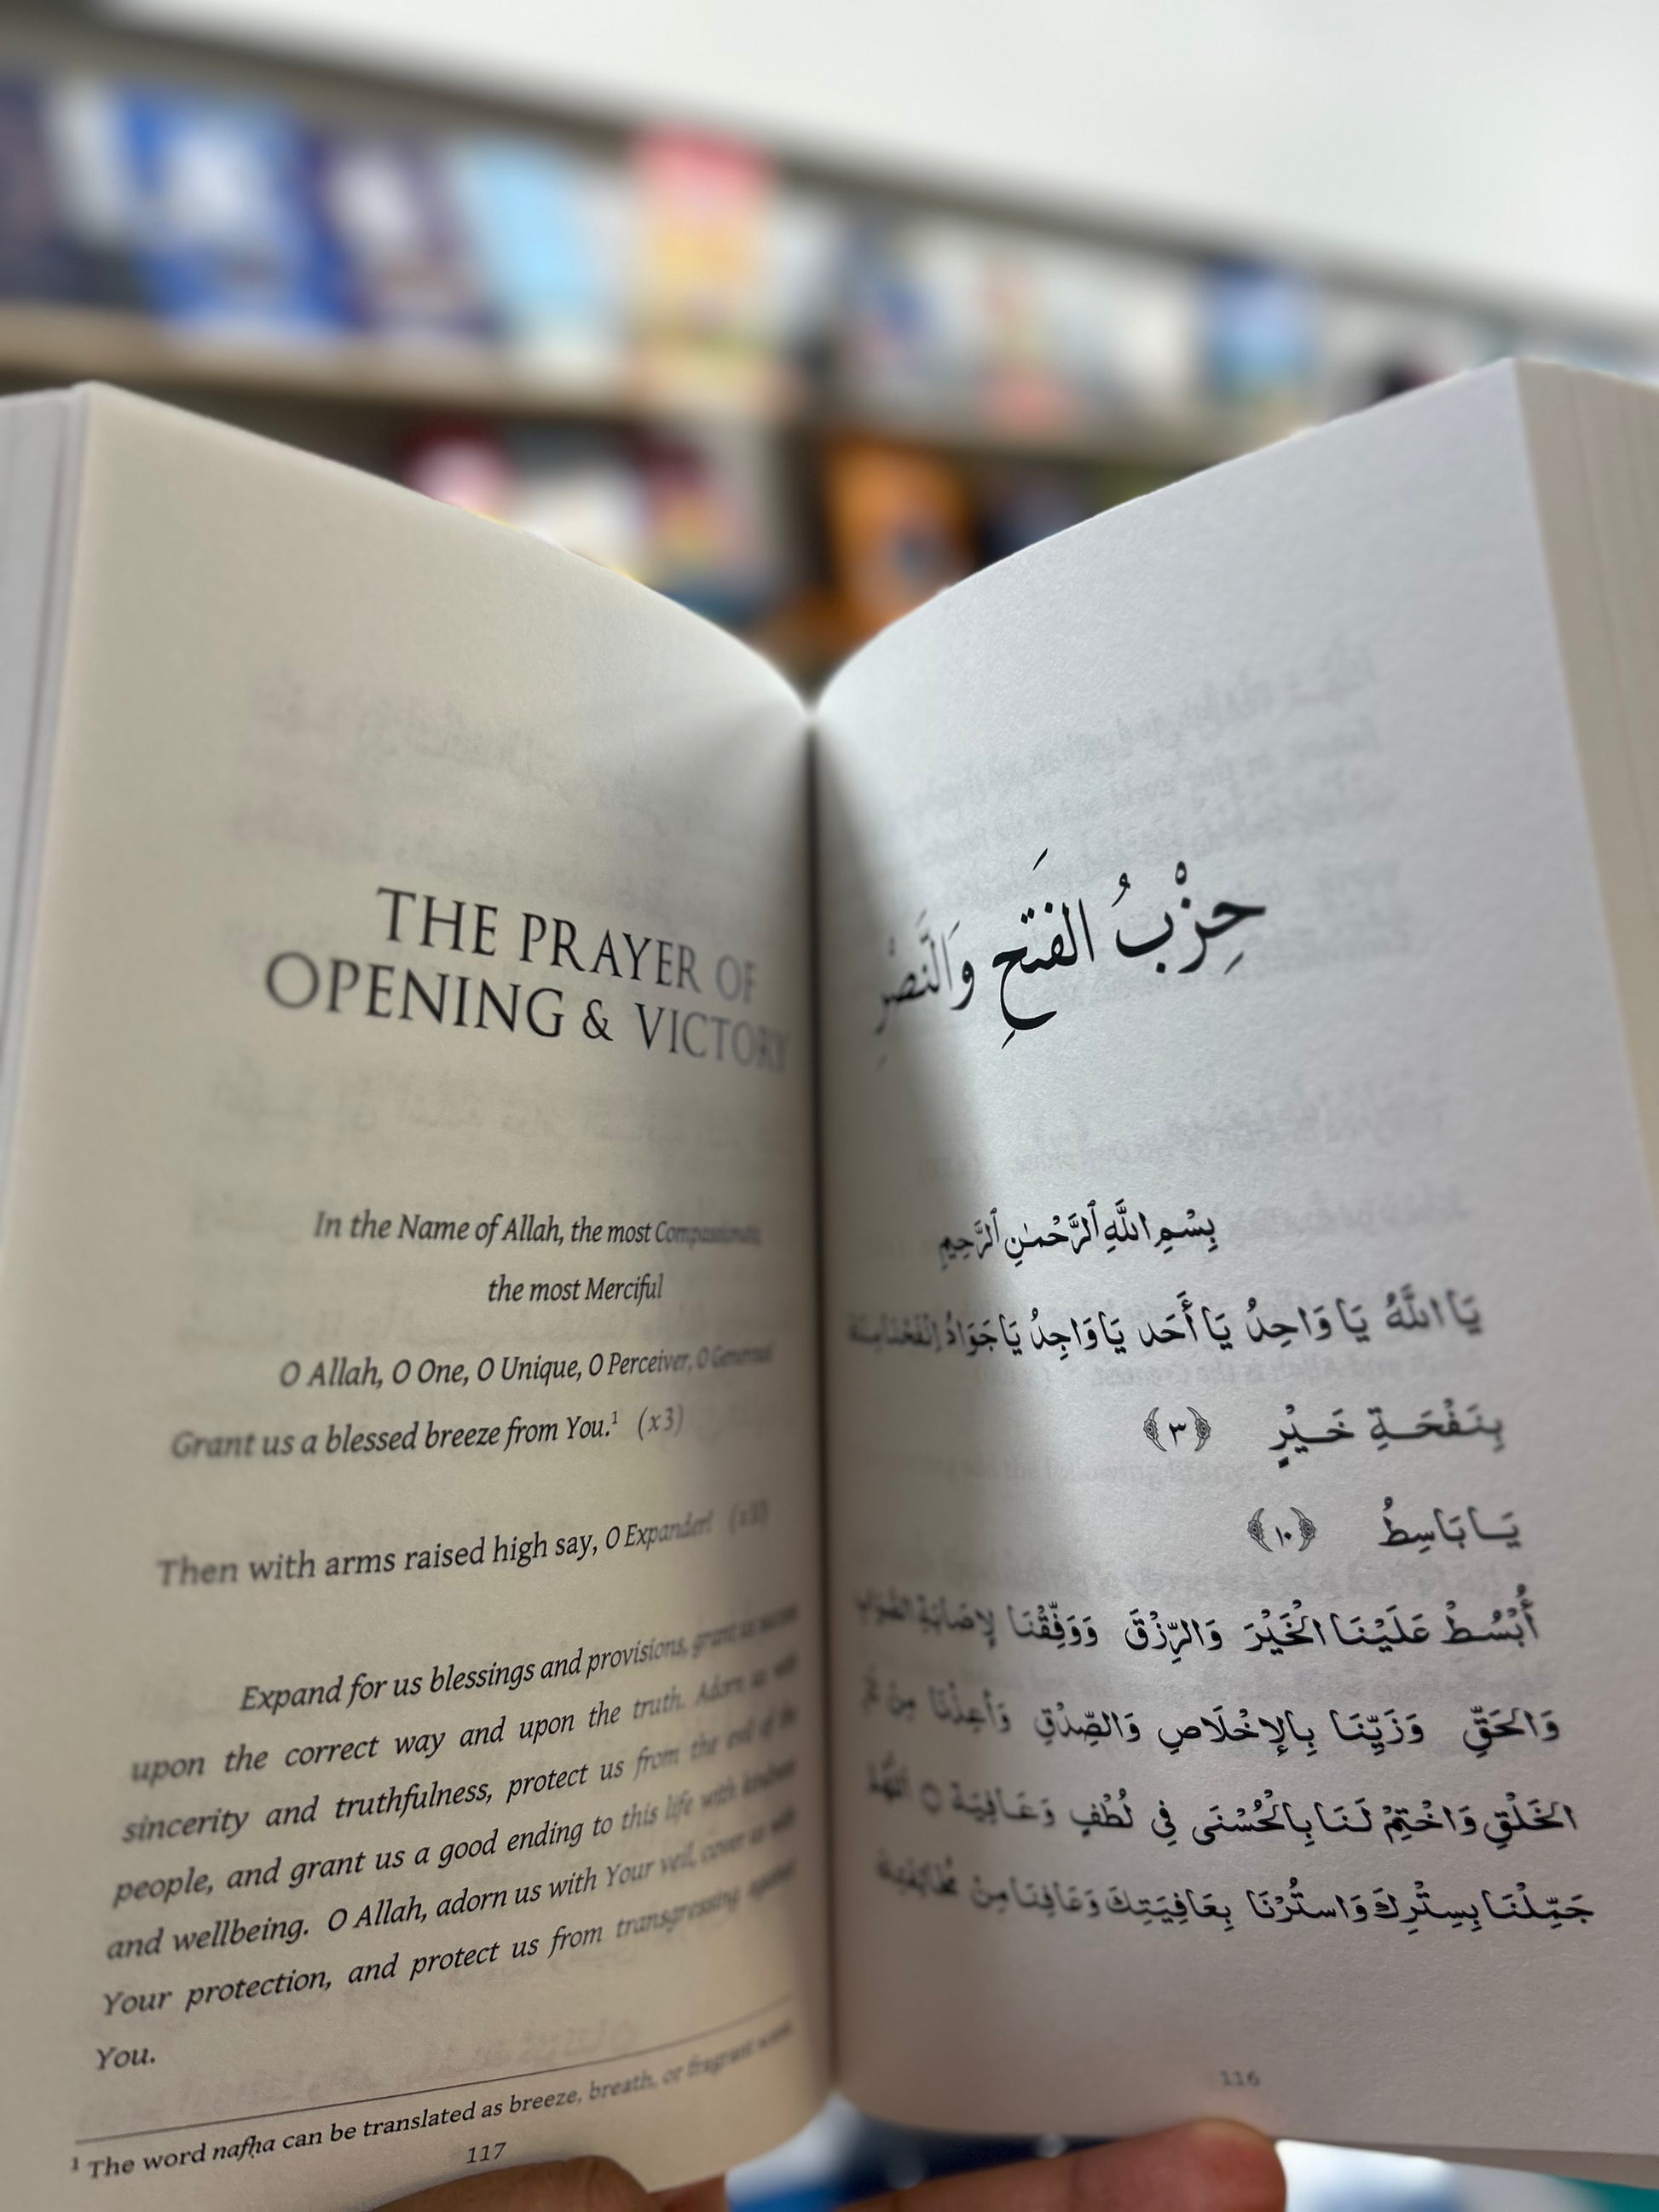 حِزْبُ الفَتحِ وَالنَّصْرِ
بِسْمِ اللَّهِ ٱلرَّحْمَـٰنِ ٱلرَّحِيمِ
يَا اللَّهُ يَا وَاحِدُ يَا أَحَد يَا وَاجِدُ يَا جَوَادُ إِنْفَحْنَا مِنْكَ
بِنَفْحَةِ خَيْرٍ ﴿٣﴾
يَا بَاسِطُ ﴿١٠﴾
أُبْسُطْ عَلَيْنَا الْخَيْرَ وَالرِّزْقَ وَوَفِّقْنَا لِإِصَابَةِ الصَّوَابِ
وَالحَقِّ وَزَيِّنَا بِالإِخْلَاصِ وَالصِّدْقِ وَأَعِذْنَا مِنْ
الخَلْقِ وَاخْتِمْ لَنَا بِالْحُسْنَى فِي لُطْفٍ وَعَافِيَة ○
جَمِّلْنَا بِسِتْرِكَ وَاستُرْنَا بِعَافِيَتِكَ وَعَافِنَا مِنْ
116
THE PRAYER OF
OPENING & VICTORY
In the Name of Allah, the most Compassionate,
the most Merciful
O Allah, O One, O Unique, O Perceiver, O Generous!
Grant us a blessed breeze from You.¹ (x3)
Then with arms raised high say, O Expander!
Expand for us blessings and provisions, grant us
upon the correct way and upon the truth. Adorn us with
sincerity and truthfulness, protect us from the evil of the
people, and grant us a good ending to this life with kindness
and wellbeing. O Allah, adorn us with Your veil, cover us with
Your protection, and protect us from transgressing against
You.
¹ The word nafḥa can be translated as breeze, breath, or fragrant scent.
117